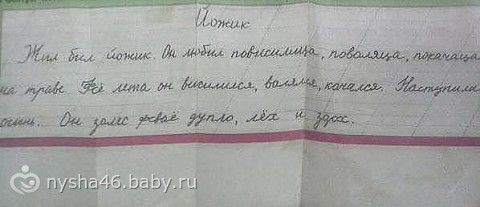 Йожик
Жил бил йожик. Он любил повисилица, поваляца, покачаца
на траве. Всё лета он висилился, валялся, качался. Наступила
осинь. Он залес фсваё дупло, лёх и здох.
nysha46.baby.ru